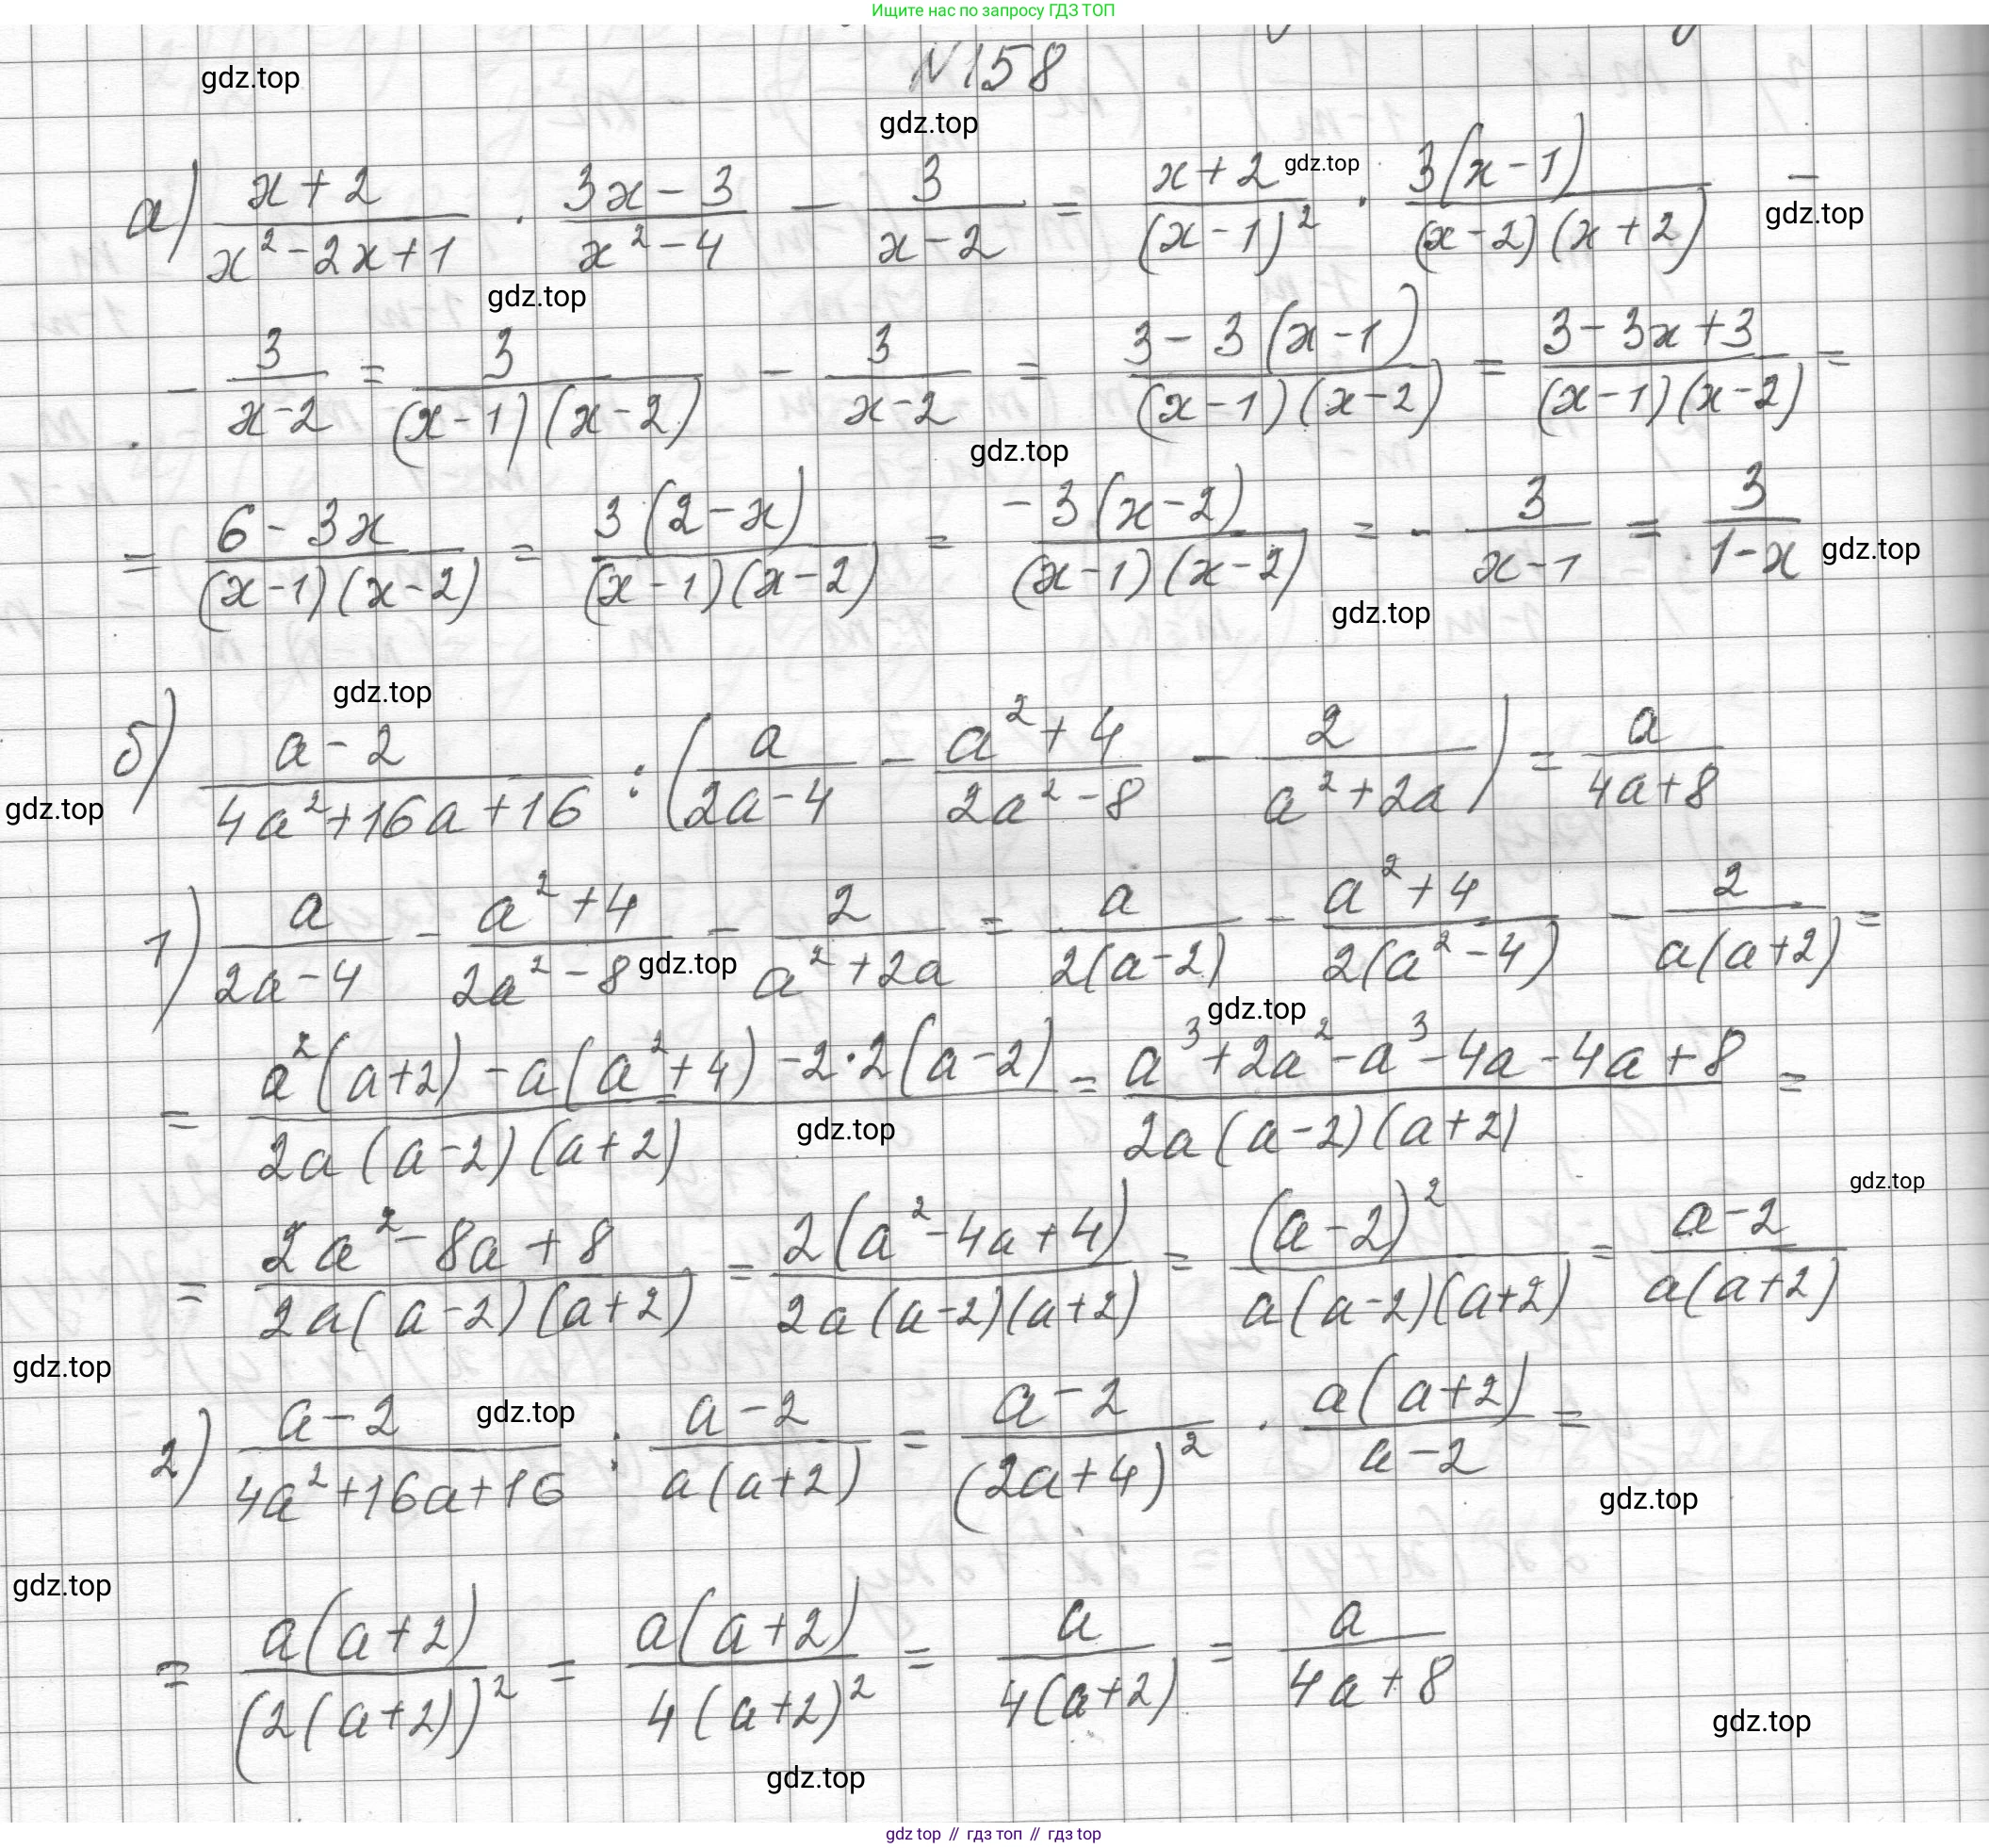 Ищите нас по запросу ГДЗ ТОП
N158
gdz.top
gdz.top
а) (x+2)/(x²-2x+1) · (3x-3)/(x²-4) - 3/(x-2) = (x+2)/(x-1)² · 3(x-1)/((x-2)(x+2)) -
gdz.top
gdz.top
gdz.top
- 3/(x-2) = 3/((x-1)(x-2)) - 3/(x-2) = (3-3(x-1))/((x-1)(x-2)) = (3-3x+3)/((x-1)(x-2)) =
gdz.top
= (6-3x)/((x-1)(x-2)) = 3(2-x)/((x-1)(x-2)) = -3(x-2)/((x-1)(x-2)) = - 3/(x-1) = 3/(1-x)
gdz.top
gdz.top
gdz.top
б) (a-2)/(4a²+16a+16) : (a/(2a-4) - (a²+4)/(2a²-8) - 2/(a²+2a)) = a/(4a+8)
gdz.top
1) a/(2a-4) - (a²+4)/(2a²-8) - 2/(a²+2a) = a/(2(a-2)) - (a²+4)/(2(a²-4)) - 2/(a(a+2)) =
gdz.top
gdz.top
= (a²(a+2)-a(a²+4)-2·2(a-2))/(2a(a-2)(a+2)) = (a³+2a²-a³-4a-4a+8)/(2a(a-2)(a+2)) =
gdz.top
gdz.top
= (2a²-8a+8)/(2a(a-2)(a+2)) = 2(a²-4a+4)/(2a(a-2)(a+2)) = (a-2)²/(a(a-2)(a+2)) = (a-2)/(a(a+2))
gdz.top
gdz.top
2) (a-2)/(4a²+16a+16) : (a-2)/(a(a+2)) = (a-2)/(2a+4)² · a(a+2)/(a-2) =
gdz.top
gdz.top
= a(a+2)/(2(a+2))² = a(a+2)/(4(a+2)²) = a/(4(a+2)) = a/(4a+8)
gdz.top
gdz.top
gdz top // гдз топ // gdz top